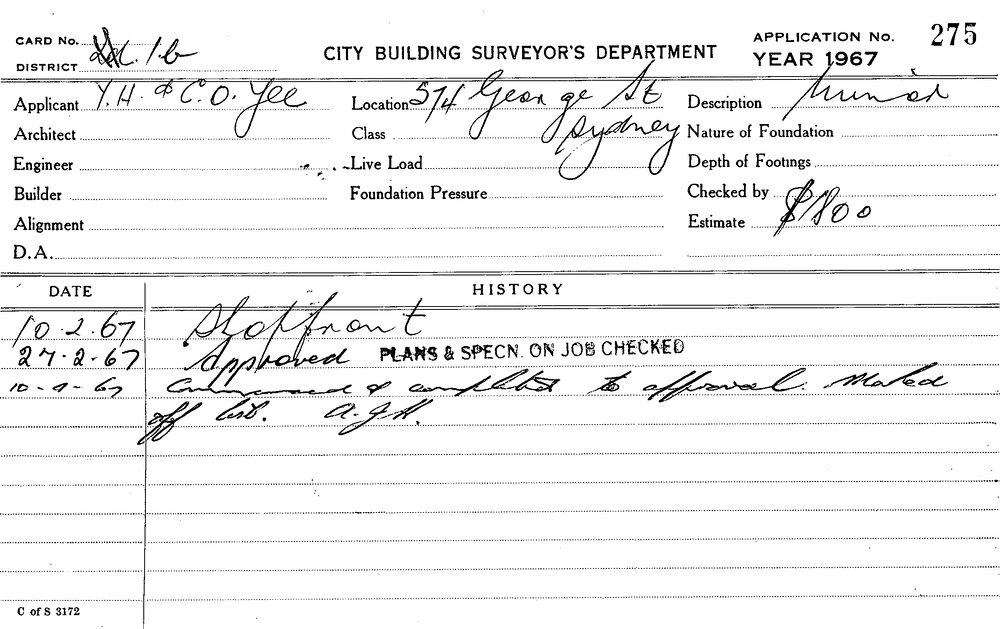 CARD No.
DISTRICT 1b
CITY BUILDING SURVEYOR'S DEPARTMENT
APPLICATION No. 275
YEAR 1967
Applicant Y.H. & C.O. Yee
Location 574 George St
Sydney
Description Minor
Architect
Class
Nature of Foundation
Engineer
Live Load
Depth of Footings
Builder
Foundation Pressure
Checked by
Alignment
Estimate $1800
D.A.
DATE HISTORY
10.2.67 Shopfront
27.2.67 Approved PLANS & SPECN. ON JOB CHECKED
10-9-67 Commenced & completed to approval. Marked
off list. A.J.H.
C of S 3172